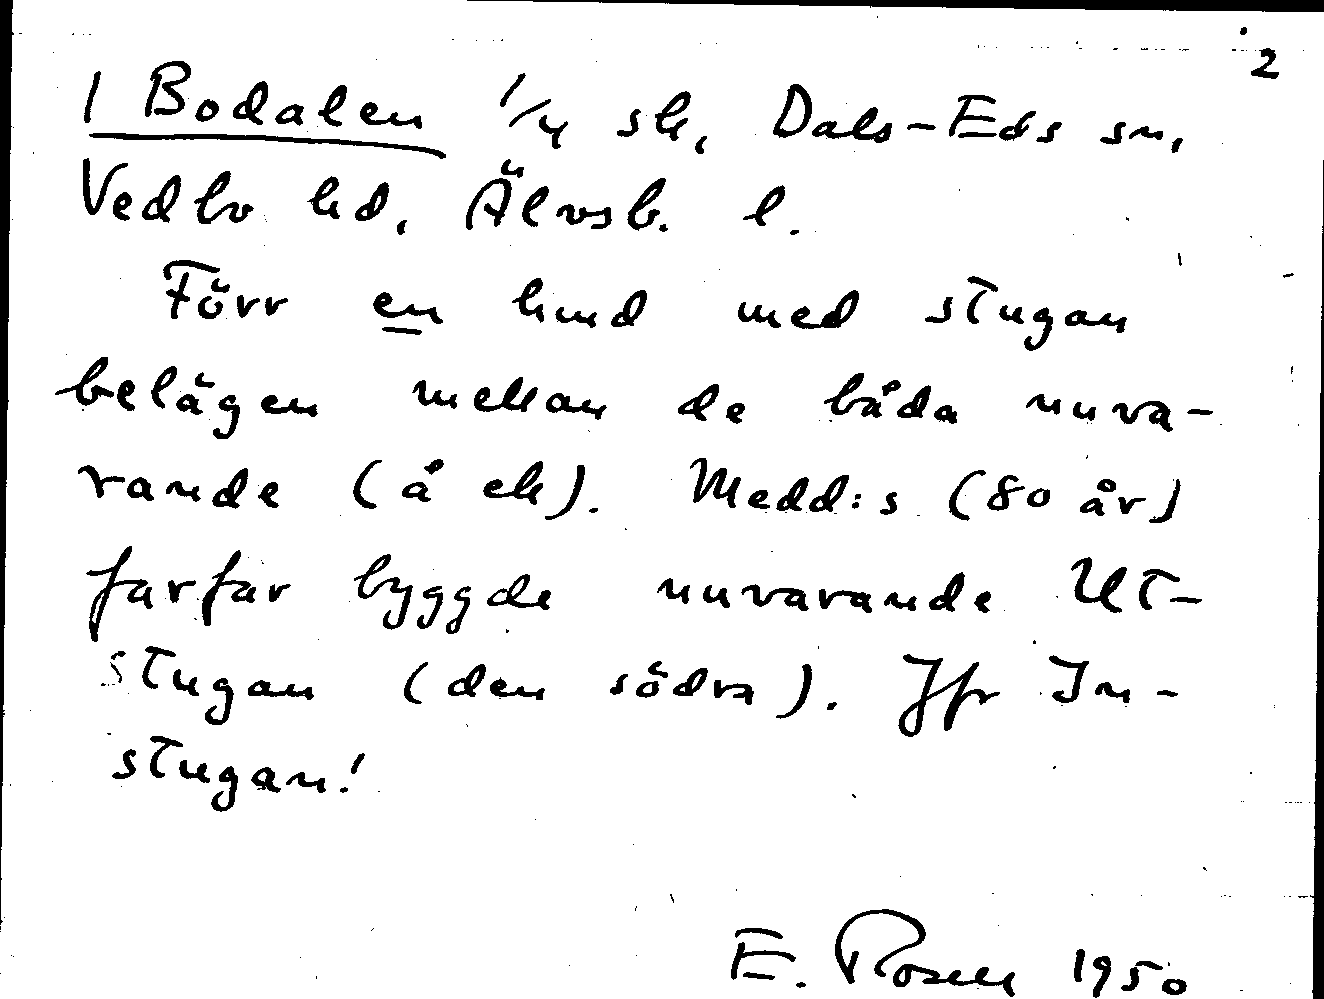 2
1 Bodalen 1/4 sk, Dals-Eds sn,
Vedbo hd, Älvsb. l.
Förr en hmd med stugan
belägen mellan de båda nuva-
rande (å ek). Medd:s (80 år)
farfar byggde nuvarande Ut-
stugan (den södra). Jfr In-
stugan!
E. Rosell 1950